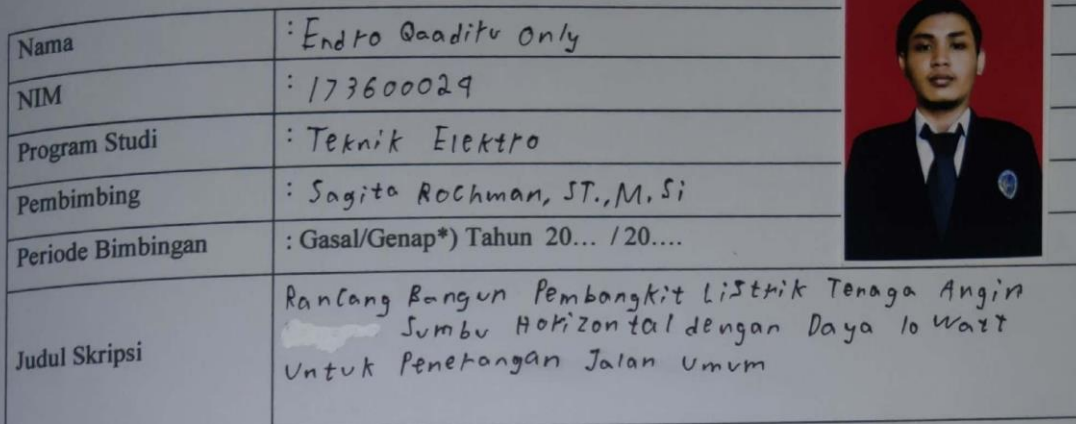 Nama : Endro Qaaditu Only
NIM : 173600029
Program Studi : Teknik Elektro
Pembimbing : Sagita Rochman, ST., M. Si
Periode Bimbingan : Gasal/Genap*) Tahun 20... / 20....
Judul Skripsi Rancang Bangun Pembangkit Listrik Tenaga Angin
Sumbu Horizontal dengan Daya 10 Watt
Untuk Penerangan Jalan Umum